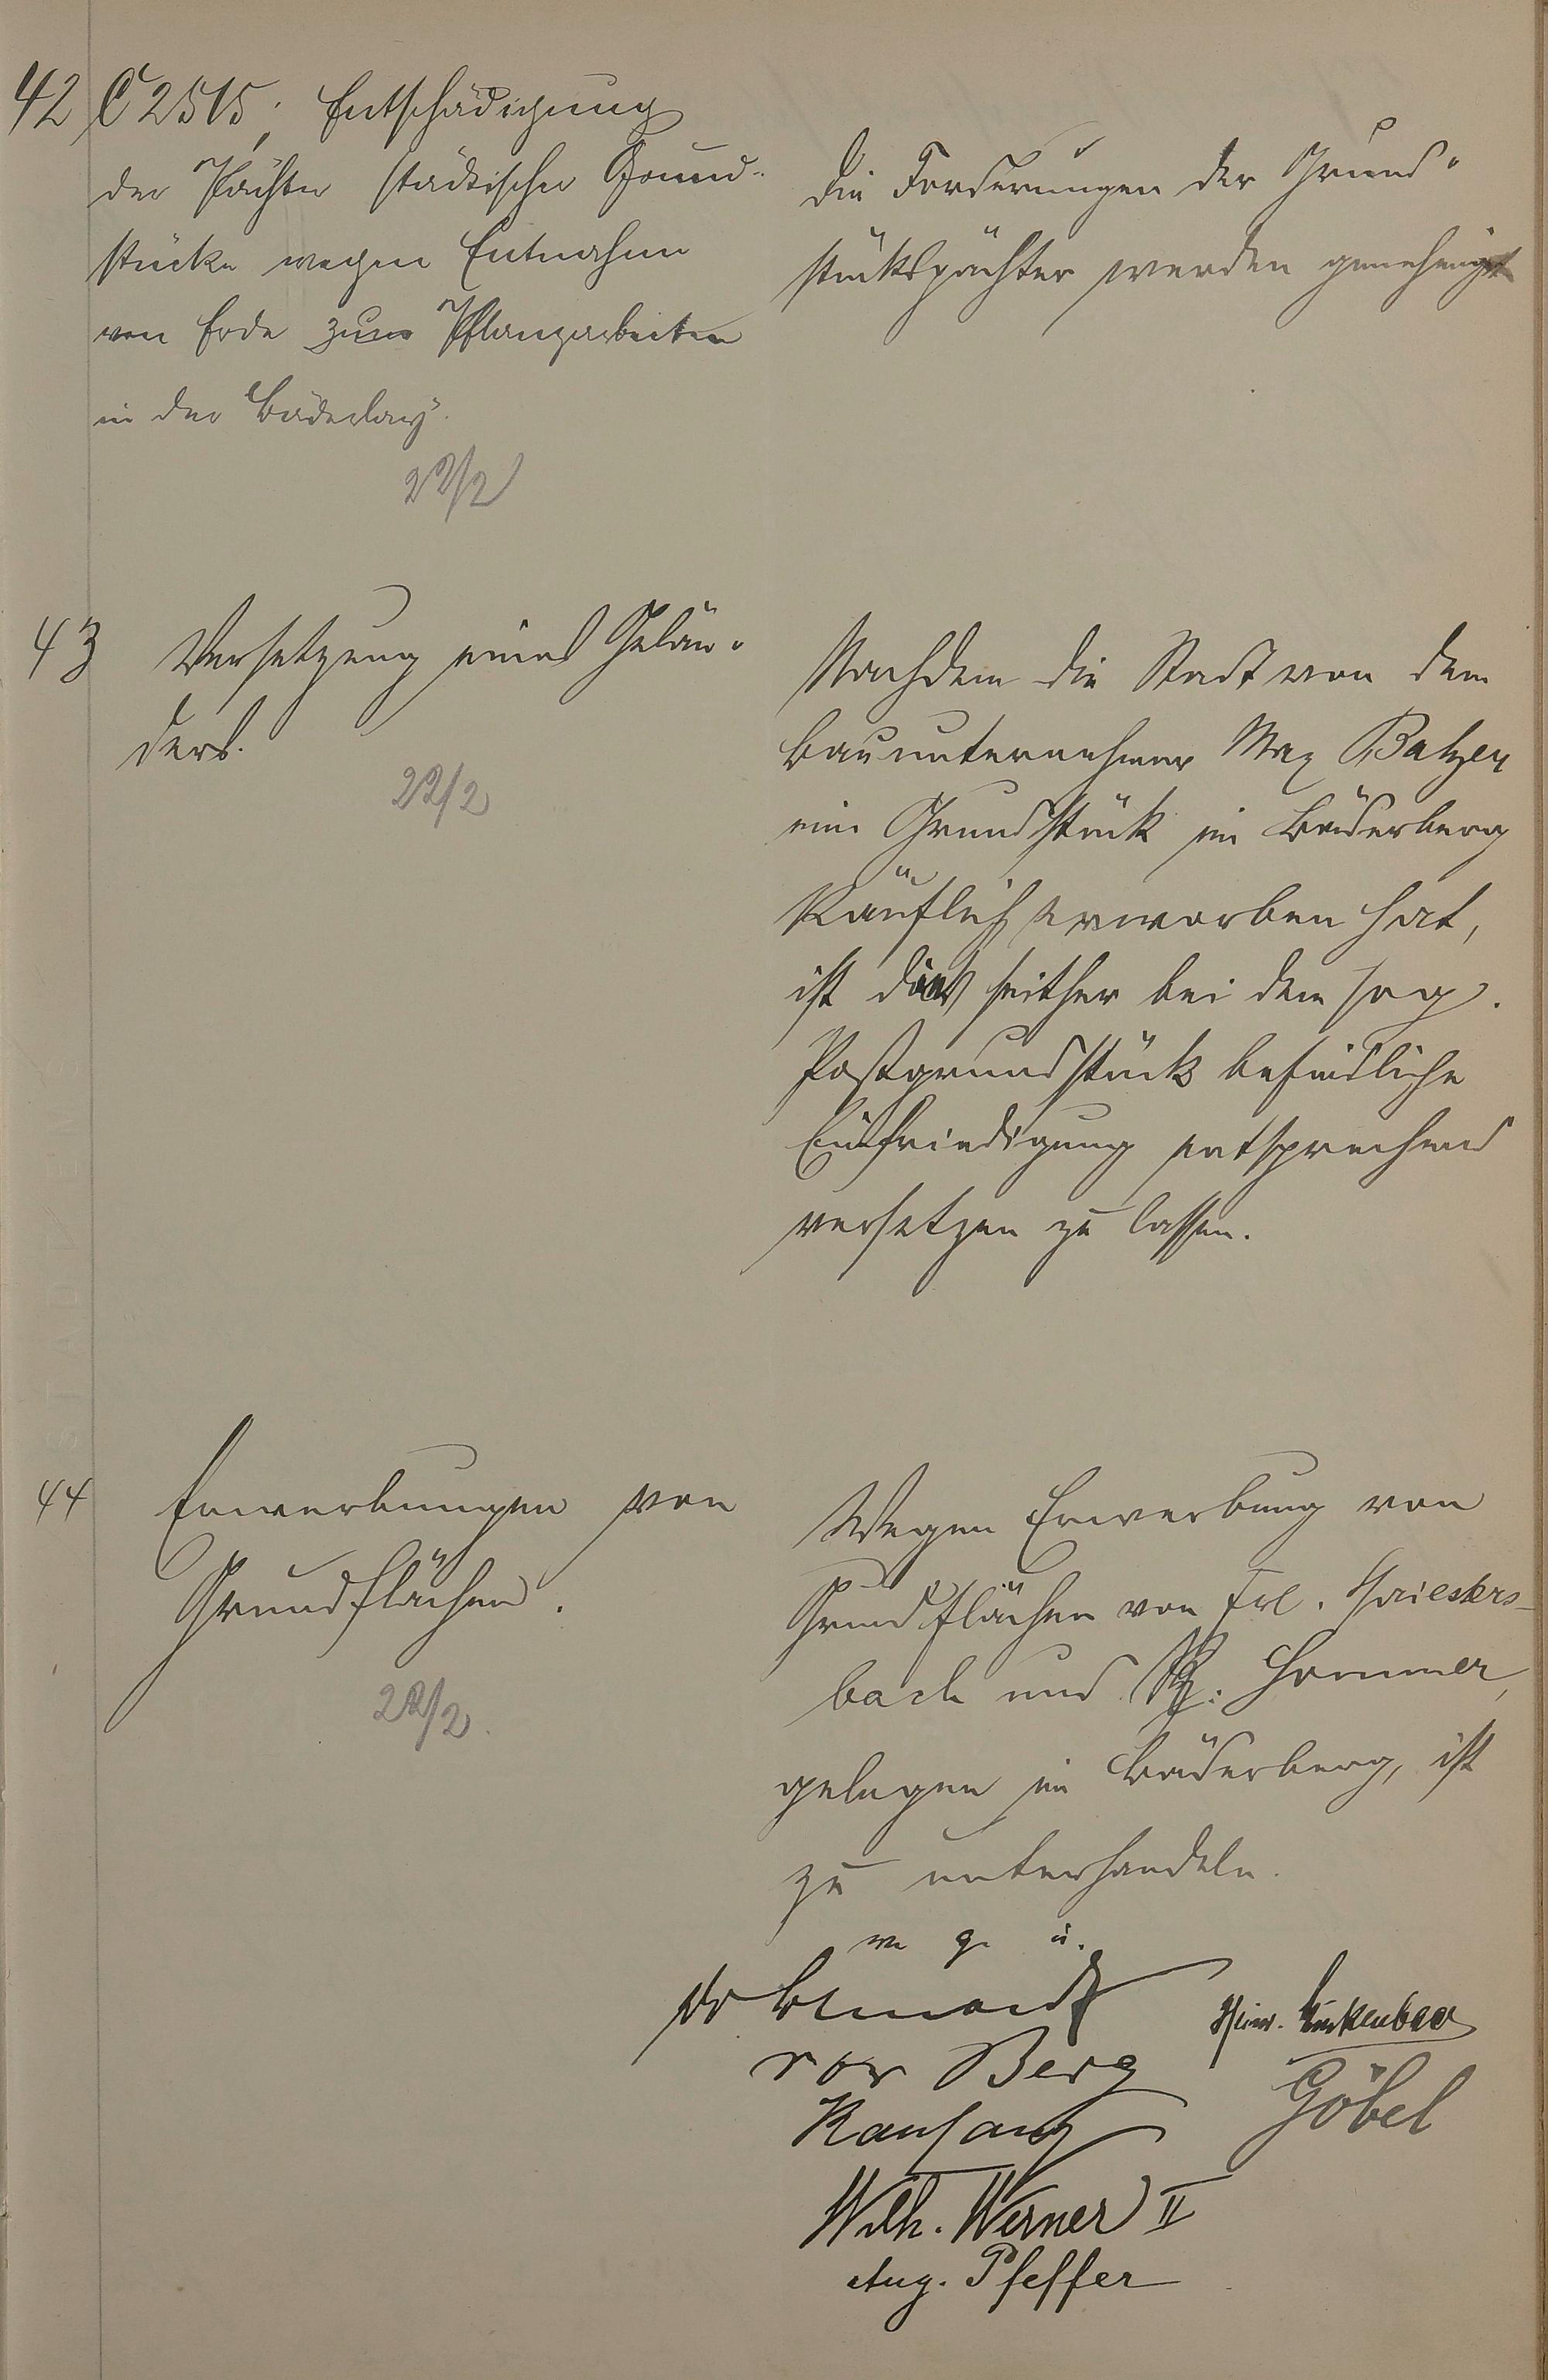 42 C 2515, Entschädigung
der Pächter städtischer Grund-
stücke wegen Entnahme
von Erde zum Pflanzarbeiten
in der Bäderlay.
22/2
Die Forderungen der Grund-
stückspächter werden genehmigt
43 Versetzung eines Gelän-
ders.
22/2
Nachdem die Stadt von dem
Bauunternehmer Max Balzer
ein Grundstück im Bäderberg
käuflich erworben hat,
ist die seither bei dem sog.
Postgrundstück befindliche
Einfriedigung entsprechend
versetzen zu lassen.
44 Erwerbungen von
Grundflächen.
22/2.
Wegen Erwerbung von
Grundflächen von Frl. Griesters-
bach und Ph. Sommer,
gelegen im Bäderberg, ist
zu unterhandeln.
v. g. u.
vor Berg
Göbel
Wilh. Werner II
Aug. Pfeffer